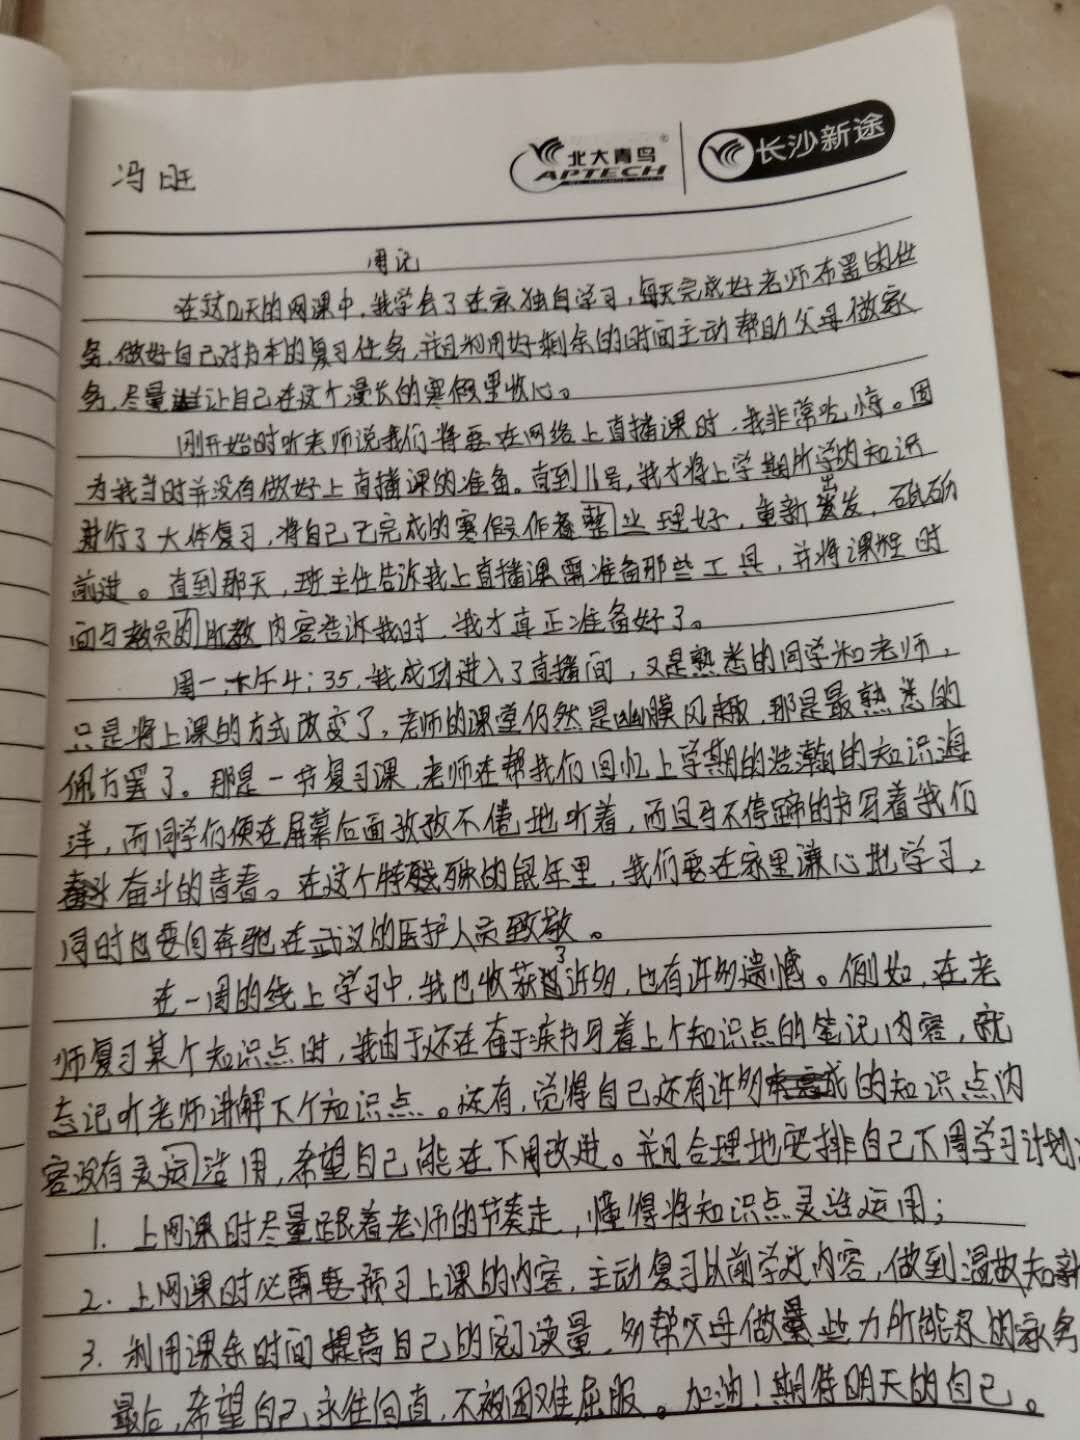 冯旺
北大青鸟
APTECH
长沙新途
周记
在这几天的网课中,我学会了在家独自学习,每天完成好老师布置的任
务,做好自己对书本的复习任务,并且利用好剩余的时间主动帮助父母做家
务,尽量让自己在这个漫长的寒假里收心。
刚开始时听老师说我们将要在网络上直播课时,我非常吃惊。因
为我当时并没有做好上直播课的准备。直到11号,我才将上学期所学的知识
进行了大体复习,将自己已完成的寒假作业整理好,重新出发,砥砺
前进。直到那天,班主任告诉我上直播课需准备那些工具,并将课程时
间与教员的所教内容告诉我时,我才真正准备好了。
周一,下午4:35,我成功进入了直播间,又是熟悉的同学和老师,
只是将上课的方式改变了,老师的课堂仍然是幽默风趣,那是最熟悉的
配方罢了。那是一节复习课,老师在帮我们回忆上学期的浩瀚的知识海
洋,而同学们便在屏幕后面孜孜不倦地听着,而且马不停蹄的书写着我们
奋斗的青春。在这个特殊的鼠年里,我们要在家里谦心地学习,
同时也要向奔驰在武汉的医护人员致敬。
在一周的线上学习中,我也收获了许多,也有许多遗憾。例如,在老
师复习某个知识点时,我由于还在奋于疾书写着上个知识点的笔记内容,就
忘记听老师讲解下个知识点。还有,觉得自己还有许多的知识点内
容没有灵活运用,希望自己能在下周改进。并且合理地安排自己下周学习计划:
1. 上网课时尽量跟着老师的节奏走,懂得将知识点灵活运用;
2. 上网课时必需要预习上课的内容,主动复习以前学过内容,做到温故知新
3. 利用课余时间提高自己的阅读量,多帮父母做些力所能及的家务
最后,希望自己永往向直,不被困难屈服。加油!期待明天的自己。